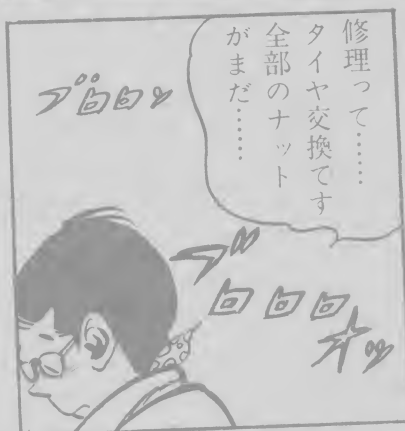 修理って……
タイヤ交換です
全部のナット
がまだ……
ブロロッ
ブロロロオッ